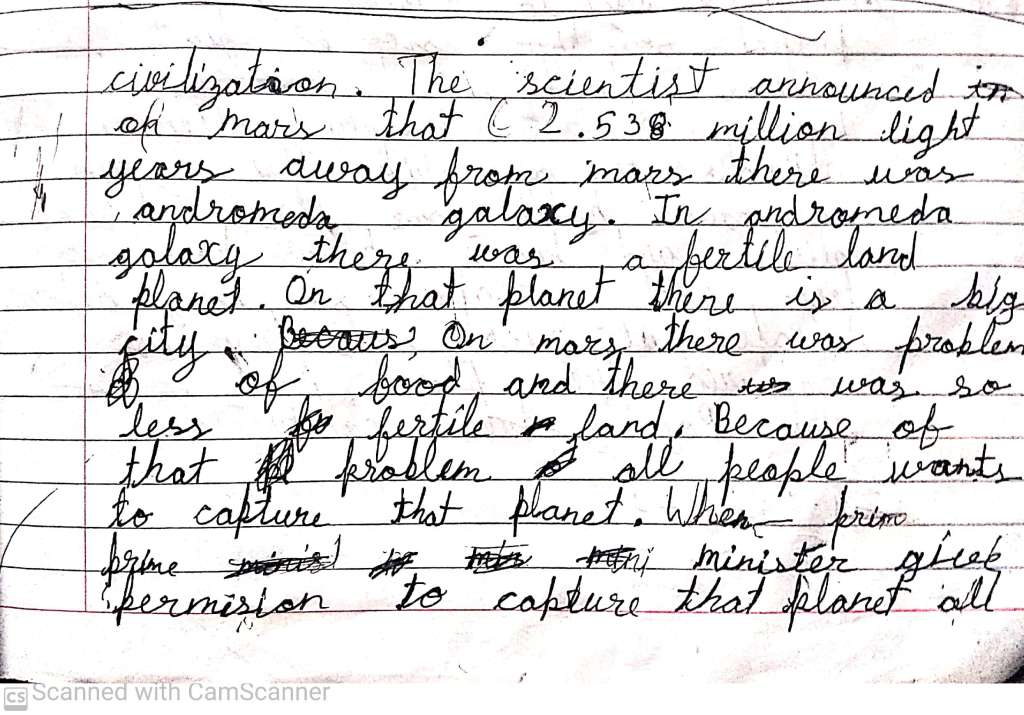 civilization. The scientist announced
of mars that ( 2.538 million light
years away from mars there was
andromeda galaxy. In andromeda
galaxy there was a fertile land
planet. On that planet there is a big
city. On mars there was problem
of food and there was so
less fertile land. Because of
that problem all people wants
to capture that planet. When prim
prime minister give
permision to capture that planet all
CS Scanned with CamScanner